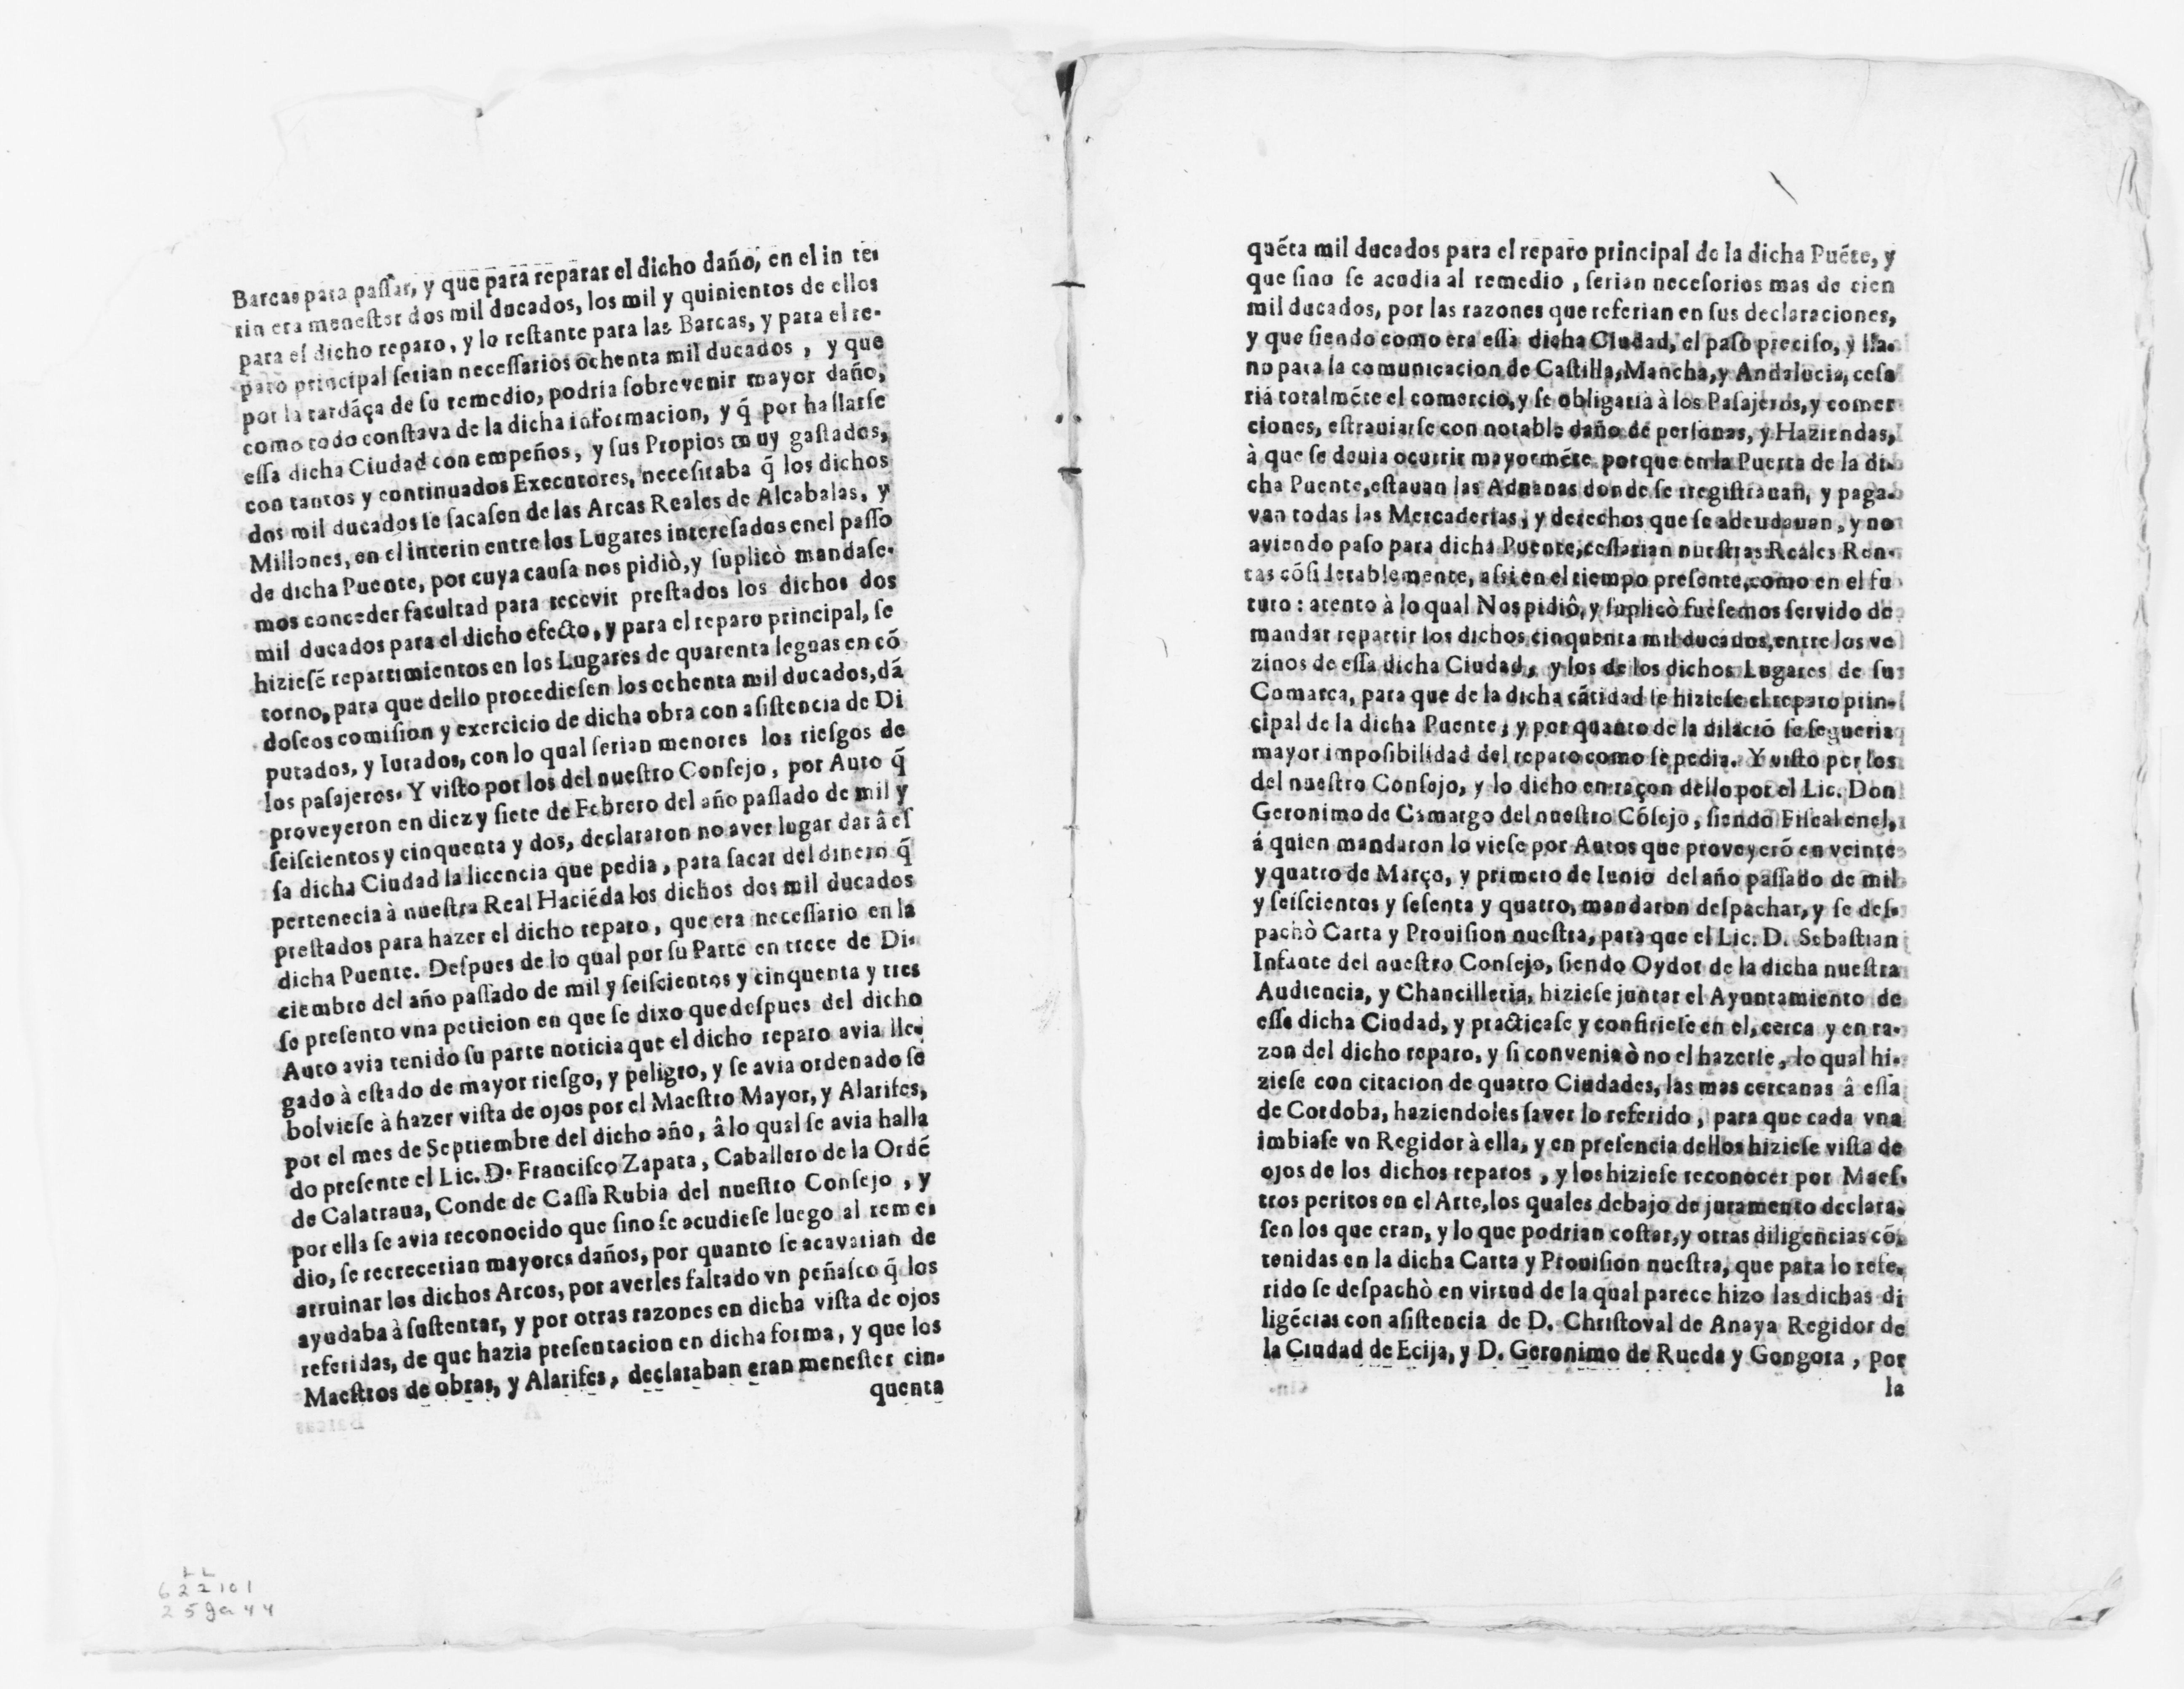 Barcas para paſſar, y que para reparar el dicho daño, en el in te-
rin era meneſter dos mil ducados, los mil y quinientos de ellos
para el dicho reparo, y lo reſtante para las Barcas, y para el re-
paro principal ſerian neceſſarios ochenta mil ducados, y que
por la tardáça de ſu remedio, podria ſobrevenir mayor daño,
como todo conſtava de la dicha informacion, y q̃ por hallarſe
eſſa dicha Ciudad con empeños, y ſus Propios muy gaſtados,
con tantos y continuados Executores, neceſitaba q̃ los dichos
dos mil ducados ſe ſacaſen de las Arcas Reales de Alcabalas, y
Millones, en el interin entre los Lugares intereſados enel paſſo
de dicha Puente, por cuya cauſa nos pidiò, y ſuplicò mandaſe-
mos conceder facultad para recevir preſtados los dichos dos
mil ducados para el dicho efecto, y para el reparo principal, ſe
hizieſẽ repartimientos en los Lugares de quarenta leguas en cõ
torno, para que dello procedieſen los ochenta mil ducados, dã
doſeos comiſion y exercicio de dicha obra con aſiſtencia de Di
putados, y Iurados, con lo qual ſerian menores los rieſgos de
los paſajeros. Y viſto por los del nueſtro Conſejo, por Auto q̃
proveyeron en diez y ſiete de Febrero del año paſſado de mil y
ſeiſcientos y cinquenta y dos, declararon no aver lugar dar â eſ
ſa dicha Ciudad la licencia que pedia, para ſacar del dinero q̃
pertenecia à nueſtra Real Haciéda los dichos dos mil ducados
preſtados para hazer el dicho reparo, que era neceſſario en la
dicha Puente. Deſpues de lo qual por ſu Parte en trece de Di-
ciembre del año paſſado de mil y ſeiſcientos y cinquenta y tres
ſe preſento vna peticion en que ſe dixo que deſpues del dicho
Auto avia tenido ſu parte noticia que el dicho reparo avia lle-
gado à eſtado de mayor rieſgo, y peligro, y ſe avia ordenado ſe
bolvieſe à hazer viſta de ojos por el Maeſtro Mayor, y Alarifes,
por el mes de Septiembre del dicho año, â lo qual ſe avia halla
do preſente el Lic. D. Franciſco Zapata, Caballero de la Ordẽ
de Calatraua, Conde de Caſſa Rubia del nueſtro Conſejo, y
por ella ſe avia reconocido que ſino ſe acudieſe luego al reme-
dio, ſe recrecerian mayores daños, por quanto ſe acavarian de
arruinar los dichos Arcos, por averles faltado vn peñaſco q̃ los
ayudaba à ſuſtentar, y por otras razones en dicha viſta de ojos
referidas, de que hazia preſentacion en dicha forma, y que los
Maeſtros de obras, y Alarifes, declaraban eran meneſter cin-
quenta
quéta mil ducados para el reparo principal de la dicha Puéte, y
que ſino ſe acudia al remedio, ſerian neceſorios mas de cien
mil ducados, por las razones que referian en ſus declaraciones,
y que ſiendo como era eſſa dicha Ciudad, el paſo preciſo, y lla-
no para la comunicacion de Caſtilla, Mancha, y Andalucia, ceſa
riá totalméte el comercio, y ſe obligaria à los Paſajeros, y comer
ciones, eſtraviarſe con notable daño de perſonas, y Haziendas,
à que ſe deuia ocurrir mayorméte porque en la Puerta de la di-
cha Puente, eſtauan las Aduanas donde ſe rregiſtrauan, y paga-
van todas las Mercaderias, y derechos que ſe adeudauan, y no
aviendo paſo para dicha Puente, ceſſarian nueſtras Reales Ren-
tas cóſiderablemente, aſsi en el tiempo preſente, como en el fu
turo: atento à lo qual Nos pidiô, y ſuplicò fueſemos ſervido de
mandar repartir los dichos cinquenta mil ducados, entre los ve
zinos de eſſa dicha Ciudad, y los de los dichos Lugares de ſu
Comarca, para que de la dicha cãtidad ſe hizieſe el reparo prin-
cipal de la dicha Puente, y por quanto de la dilació ſe ſegueria
mayor impoſibilidad del reparo como ſe pedia. Y viſto por los
del nueſtro Conſejo, y lo dicho en raçon dello por el Lic. Don
Geronimo de Camargo del nueſtro Cóſejo, ſiendo Fiſcal enel,
á quien mandaron lo vieſe por Autos que proveyeró en veinte
y quatro de Março, y primero de Iunio del año paſſado de mil
y ſeiſcientos y ſeſenta y quatro, mandaron deſpachar, y ſe deſ-
pachò Carta y Prouiſion nueſtra, para que el Lic. D. Sebaſtian
Infante del nueſtro Conſejo, ſiendo Oydor de la dicha nueſtra
Audiencia, y Chancilleria, hizieſe juntar el Ayuntamiento de
eſſa dicha Ciudad, y practicaſe y confirieſe en el, cerca y en ra-
zon del dicho reparo, y ſi convenia ò no el hazerſe, lo qual hi-
zieſe con citacion de quatro Ciudades, las mas cercanas â eſſa
de Cordoba, haziendoles ſaver lo referido, para que cada vna
imbiaſe vn Regidor à ella, y en preſencia dellos hizieſe viſta de
ojos de los dichos reparos, y los hizieſe reconocer por Maeſ-
tros peritos en el Arte, los quales debajo de juramento declara-
ſen los que eran, y lo que podrian coſtar, y otras diligencias có-
tenidas en la dicha Carta y Prouiſion nueſtra, que para lo refe-
rido ſe deſpachò en virtud de la qual parece hizo las dichas di
ligécias con aſiſtencia de D. Chriſtoval de Anaya Regidor de
la Ciudad de Ecija, y D. Geronimo de Rueda y Gongora, por
la
622101
259a44